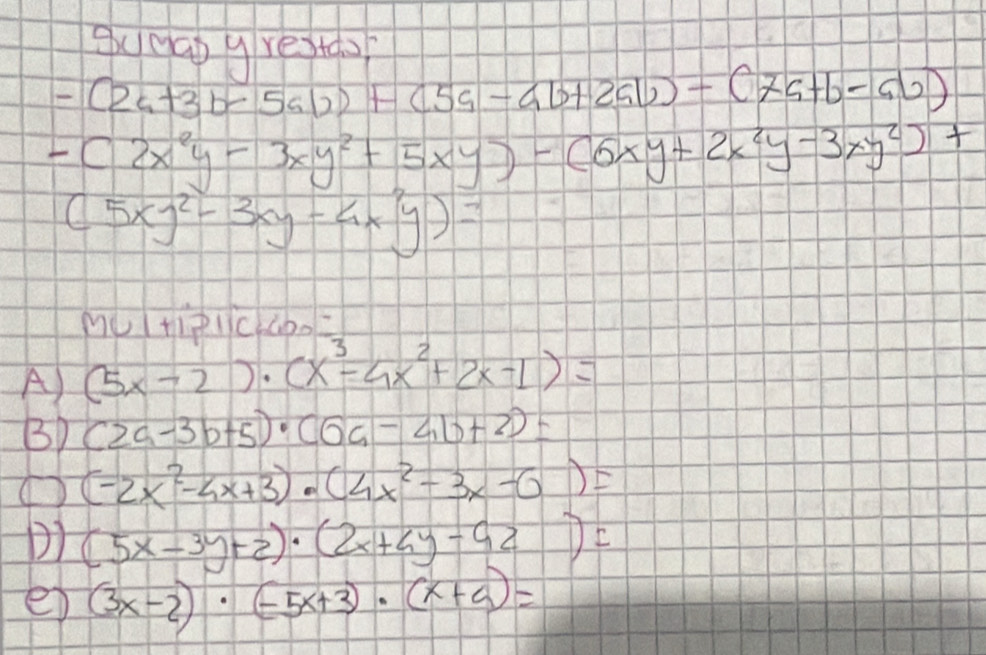 Sumas y restas:
-(2a+3b-5ab)+(5a-4b+2ab)-(7a+b-ab)
-(2x²y-3xy²+5xy)-(6xy+2x²y-3xy²)+
(5xy²-3xy-4x²y)=
Multiplicacion=
A) (5x-2)·(x³-4x²+2x-1)=
B) (2a-3b+5)·(6a-4b+2)=
C) (-2x²-4x+3)·(4x²-3x-6)=
D) (5x-3y+2)·(2x+4y-42)=
e) (3x-2)·(-5x+3)·(x+4)=